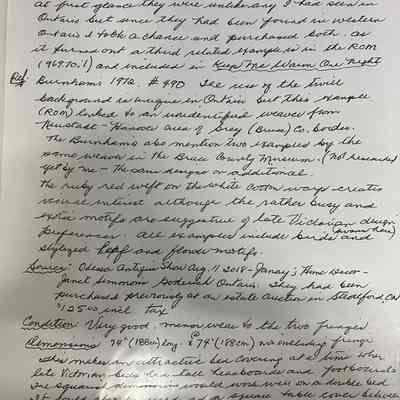 at first glance they were unlike any I had seen in
Ontario but since they had been found in western
Ontario I took a chance and purchased both. As
it turned out a third related example is in the ROM
(969.70.1) and included in Keep Me Warm One Night
Ref Burnhams 1972. # 490 The use of the twill
background is unique in Ontario but this example
(ROM) linked to an unidentified weaver from
Neustadt - Hanover area of Grey (Bruce) Co. border.
The Burnhams also mention two examples by the
same weaver in the Bruce County Museum. (Not researched
yet by me - the same designs or additional.
The ruby red weft on the white cotton warp creates
visual interest although the rather busy and
exotic motifs are suggestive of late Victorian design
preference. All examples include birds and (swans here)
stylized leaf and flower motifs.
Source: Odessa Antique Show Aug. 11 2018 - Home Decor -
Janet Goderich Ontario. They had been
purchased previously at an estate auction in Ont
$125.00 incl tax
Condition: Very good, minor wear to the two fringes
Dimensions: 74" (188cm) long x 74" (188cm) not including fringe
This makes an attractive bed covering at a time when
late Victorian beds had tall headboards and footboards
The square dimension would work well on a double bed
It could also as a square table cover between